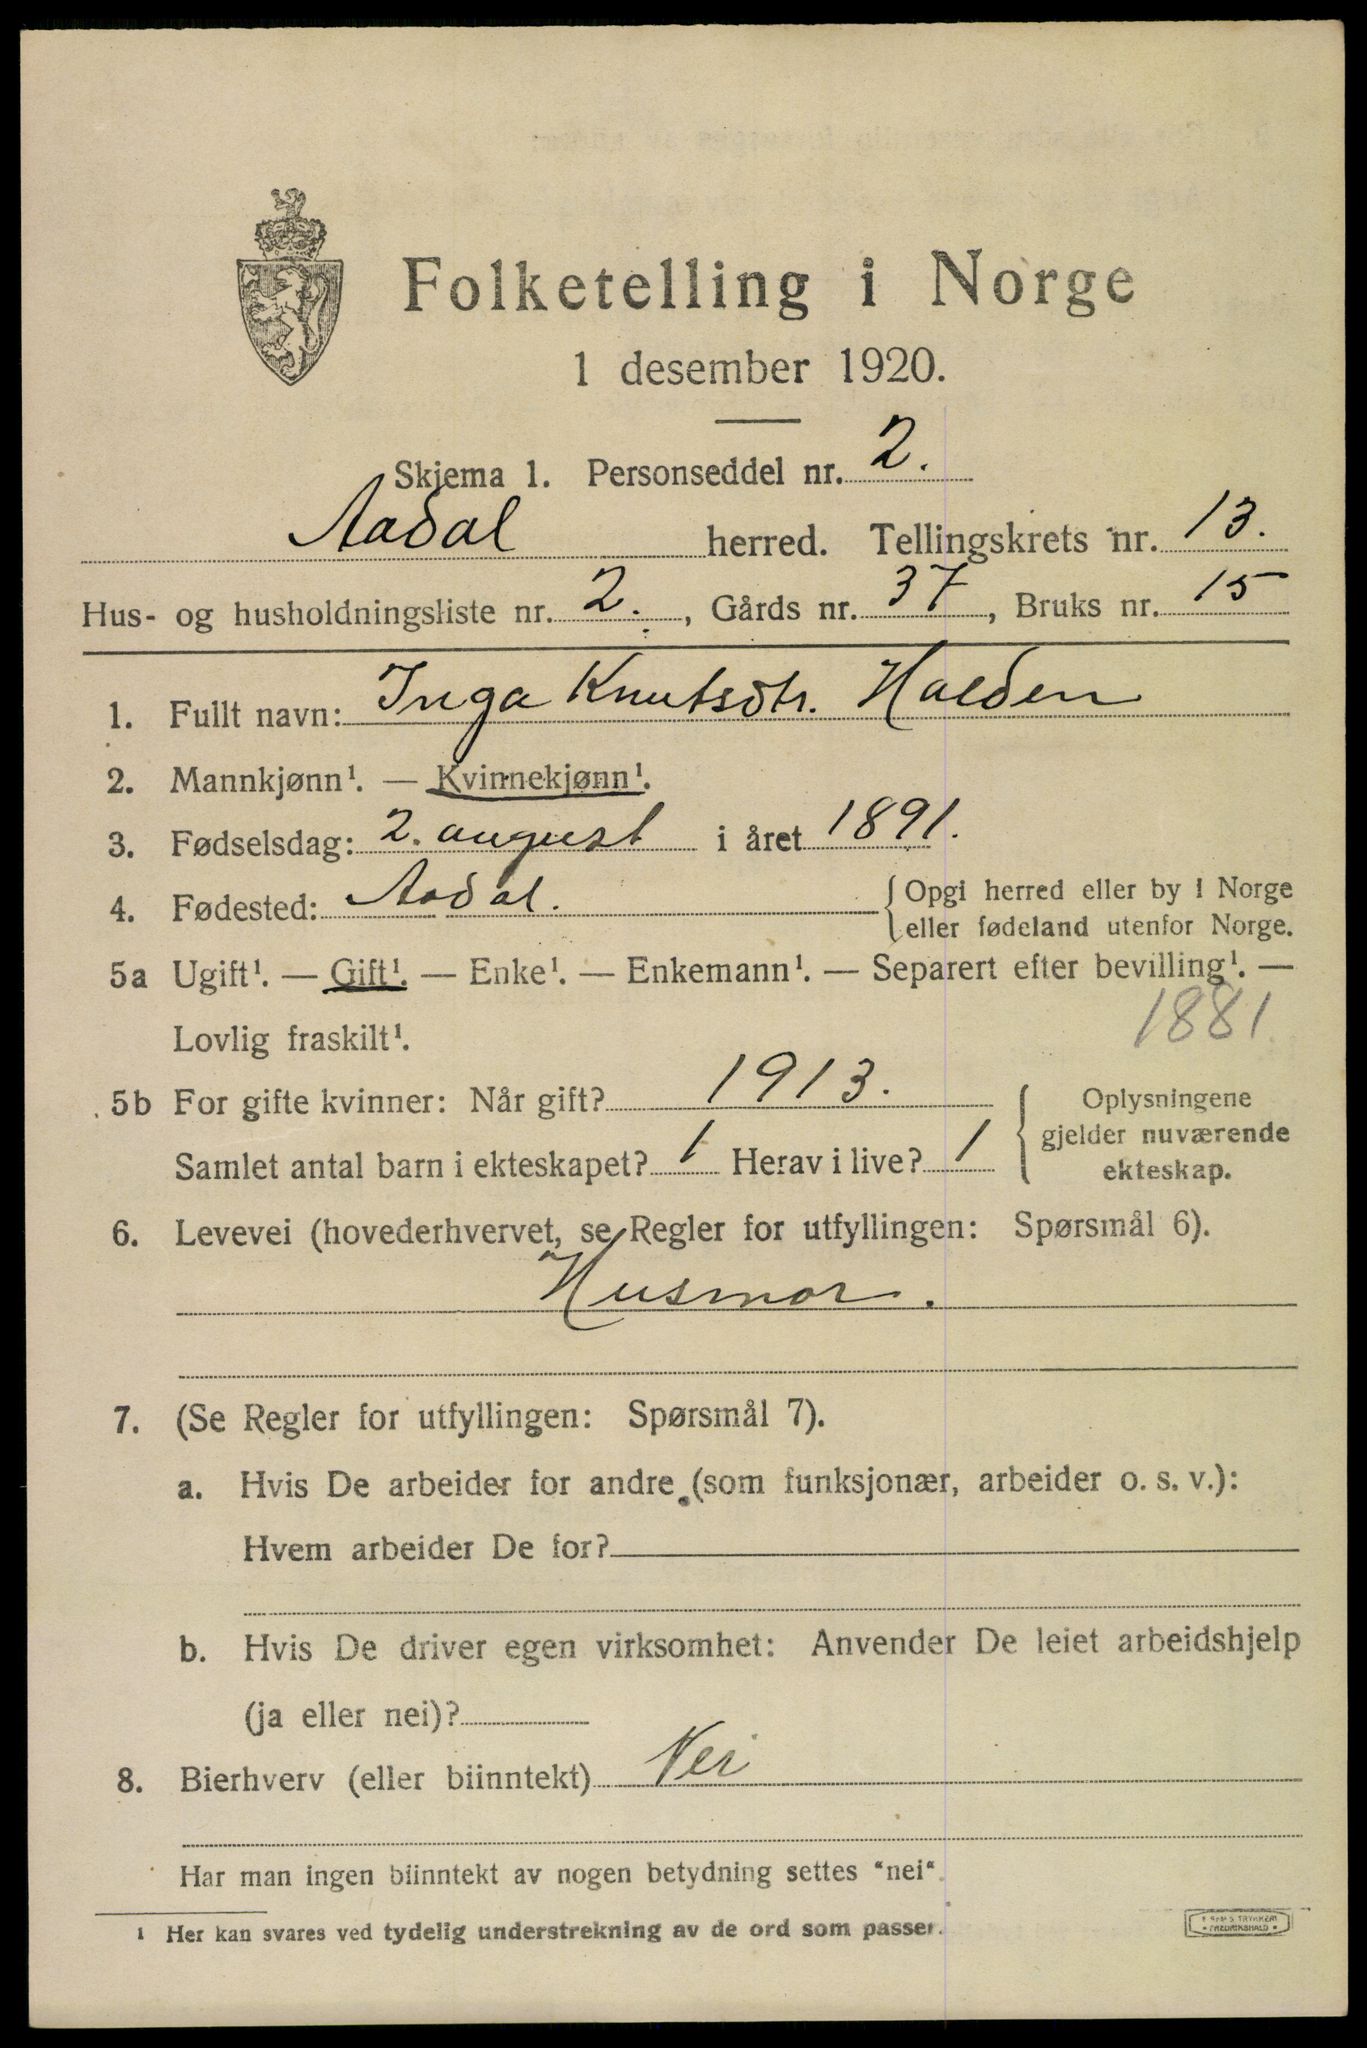 Folketelling i Norge
1 desember 1920.
Skjema 1. Personseddel nr. 2.
Aadal herred. Tellingskrets nr. 13.
Hus- og husholdningsliste nr. 2., Gårds nr. 37, Bruks nr. 15
1. Fullt navn: Inga Knutsdtr. Halden
2. Mannkjønn¹. — Kvinnekjønn¹.
3. Fødselsdag: 2. august i året 1891.
4. Fødested: Aadal. {Opgi herred eller by i Norge
eller fødeland utenfor Norge.
5a Ugift¹. — Gift¹. — Enke¹. — Enkemann¹. — Separert efter bevilling¹. —
Lovlig fraskilt¹. 1881
5b For gifte kvinner: Når gift? 1913. { Oplysningene
gjelder nuværende
Samlet antal barn i ekteskapet? 1 Herav i live? 1
ekteskap.
6. Levevei (hovederhvervet, se Regler for utfyllingen: Spørsmål 6).
Husmor.
7. (Se Regler for utfyllingen: Spørsmål 7).
a. Hvis De arbeider for andre (som funksjonær, arbeider o. s. v.):
Hvem arbeider De for?
b. Hvis De driver egen virksomhet: Anvender De leiet arbeidshjelp
(ja eller nei)?
8. Bierhverv (eller biinntekt) Nei
Har man ingen biinntekt av nogen betydning settes "nei".
¹ Her kan svares ved tydelig understrekning av de ord som passer.
TRYKKERI
FREDRIKSHALD